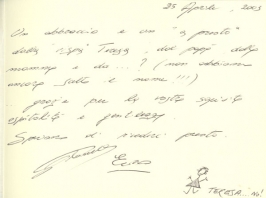 25 Aprile, 2003
Un abbraccio e un "a presto"
dalla Teresa, dal papà dalla
mamma e da ...? (non abbiamo
ancora il nome!!!)
per la vostra squisita
ospitalità e gentilezza
Speriamo di rivederci presto.
TERESA... NO!